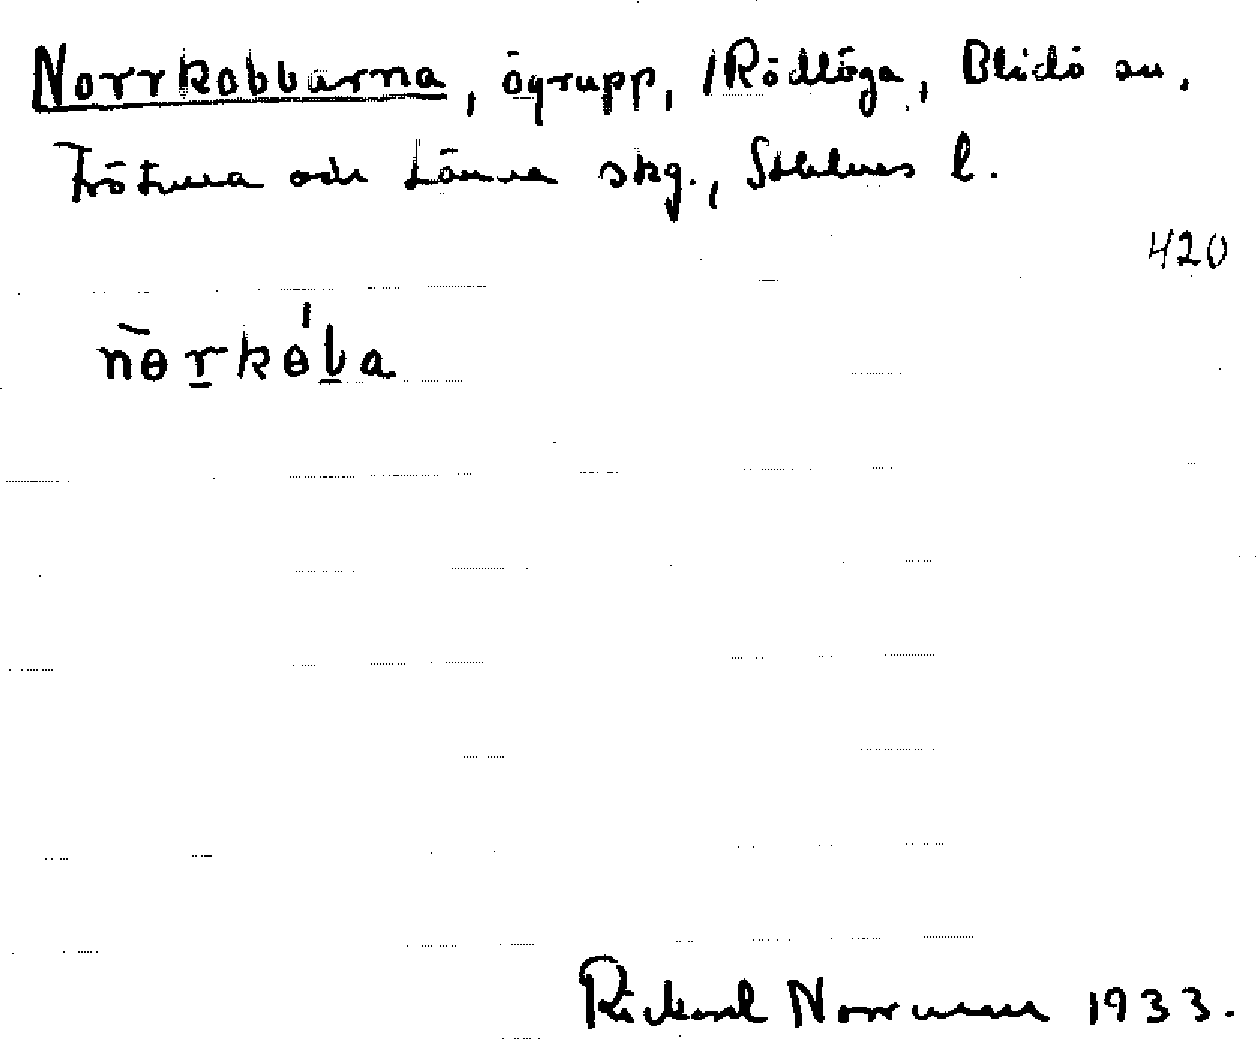 Norrkobbarna, ögrupp, /Rödlöga, Blidö sn,
Frötuna och Länna skg., Sthlms l.
420
nɵrkɵ́ba
Rickard Norrman 1933.